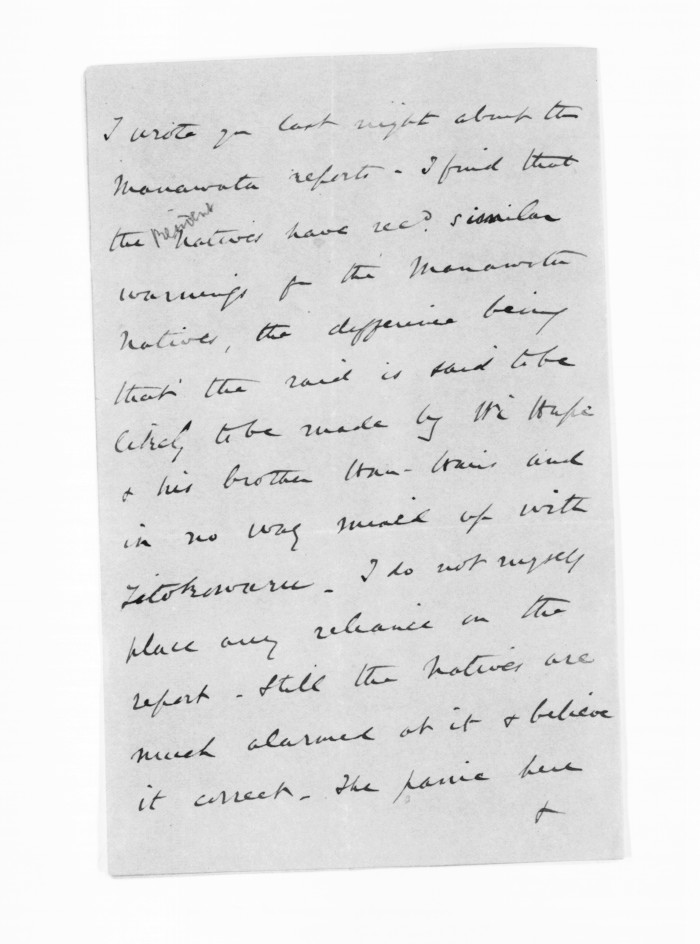 I wrote you last night about the
Manawatu reports - I find that
the resident Natives have recd. similar
warnings fm the Manawatu
Natives, the difference being
that the raid is said to be
likely to be made by Wi Hapi
& his brother and
in no way mixed up with
Titokowaru - I do not myself
place any reliance on the
report - Still the Natives are
much alarmed at it & believe
it correct - The panic here
&